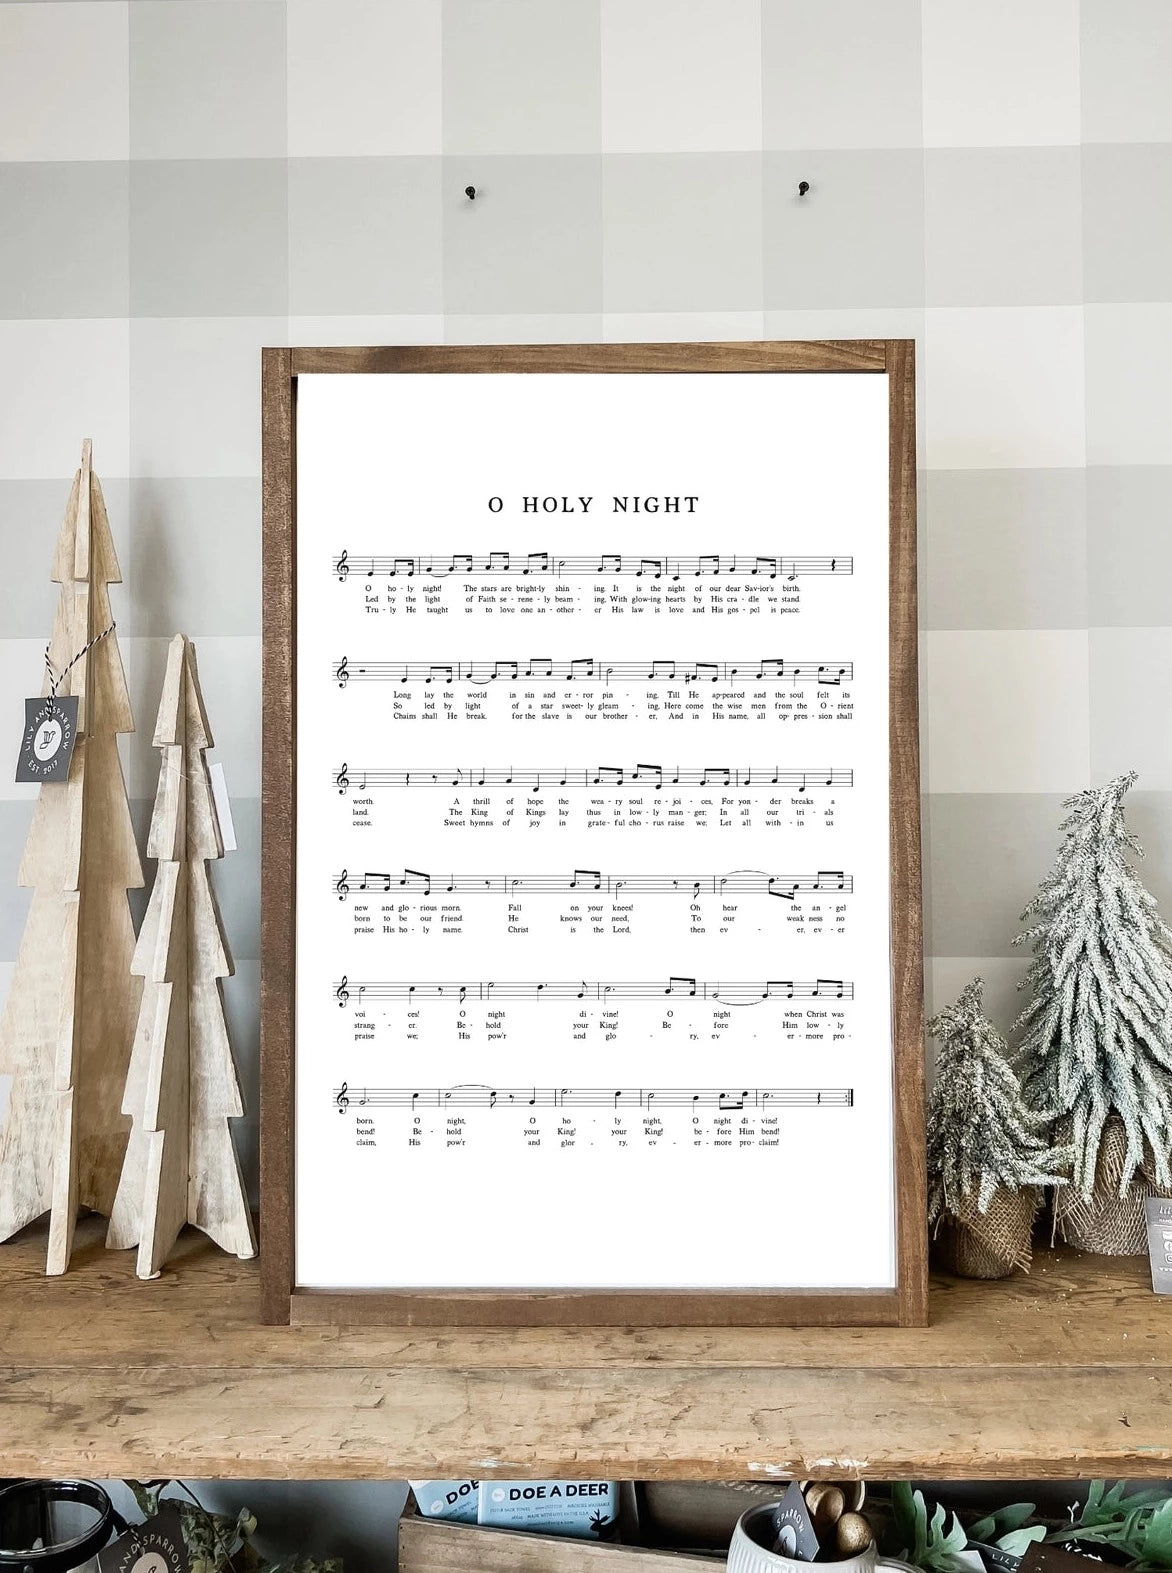 O HOLY NIGHT
O ho - ly night! The stars are bright-ly shin - ing. It is the night of our dear Sav-ior's birth.
Led by the light of Faith se - rene - ly beam - ing, With glow-ing hearts by His cra - dle we stand.
Tru - ly He taught us to love one an - other - er His law is love and His gos - pel is peace.
Long lay the world in sin and er - ror pin - ing, Till He ap-peared and the soul felt its
So led by light of a star sweet-ly gleam - ing, Here come the wise men from the O - rient
Chains shall He break, for the slave is our brother - er, And in His name, all op - pres - sion shall
worth. A thrill of hope the wea - ry soul re - joi - ces, For yon - der breaks a
land. The King of Kings lay thus in low - ly man - ger; In all our tri - als
cease. Sweet hymns of joy in grate - ful cho - rus raise we; Let all with - in us
new and glo - rious morn. Fall on your knees! Oh hear the an - gel
born to be our friend. He knows our need, To our weak ness no
praise His ho - ly name. Christ is the Lord, then ev - er, ev - er
voi - ces! O night di - vine! O night when Christ was
strang - er. Be - hold your King! Be - fore Him low - ly
praise we; His pow'r and glo - ry, ev - er - more pro -
born. O night, O ho - ly night, O night di - vine!
bend! Be - hold your King! your King! be - fore Him bend!
claim, His pow'r and glor - ry, ev - er - more pro - claim!
LILY AND SPARROW
EST. 2017
DOE
DOE A DEER
SPARROW
AND SPARROW